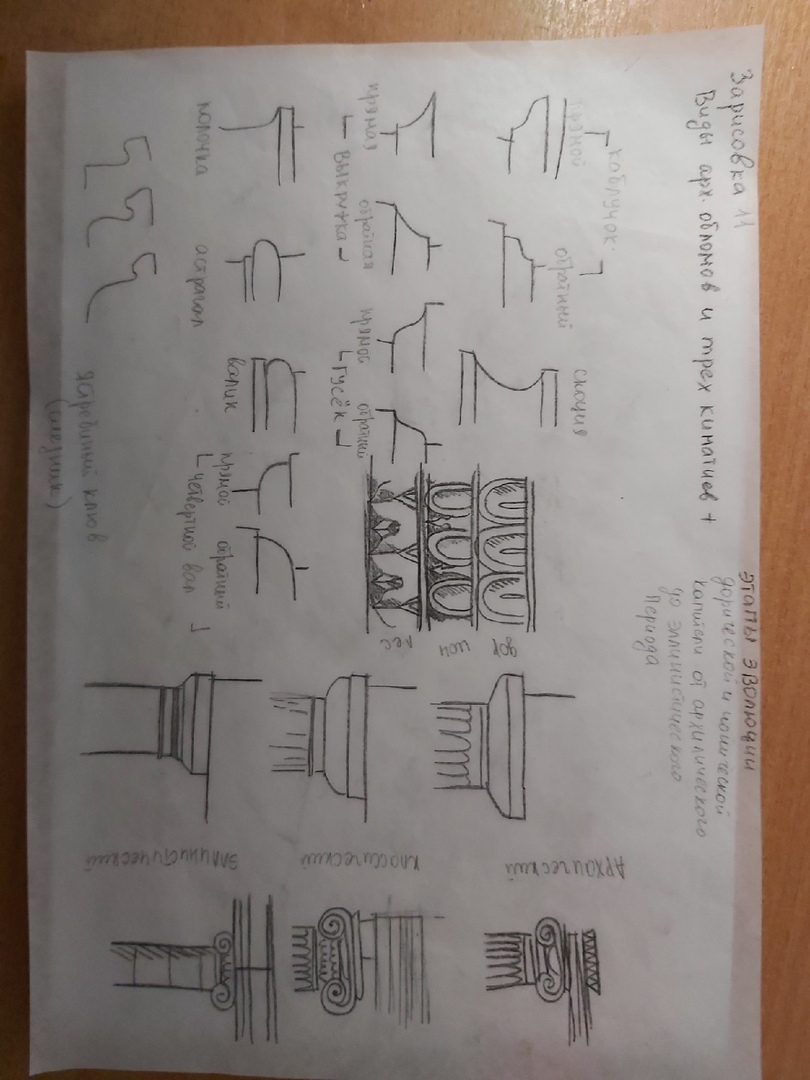 Зарисовка 11
Виды арх. обломов и трех киматиев +
этапы эволюции
дорической и ионической
капители от архаического
до эллинистического
периода
каблучок.
прямой
обратный
скоция
прямая
обратная
выкружка
прямой
обратный
гусёк
дор
ион
лес
полочка
астрагал
валик
прямой
обратный
четвертной вал
ястребиный клюв
архаический
классический
эллинистический